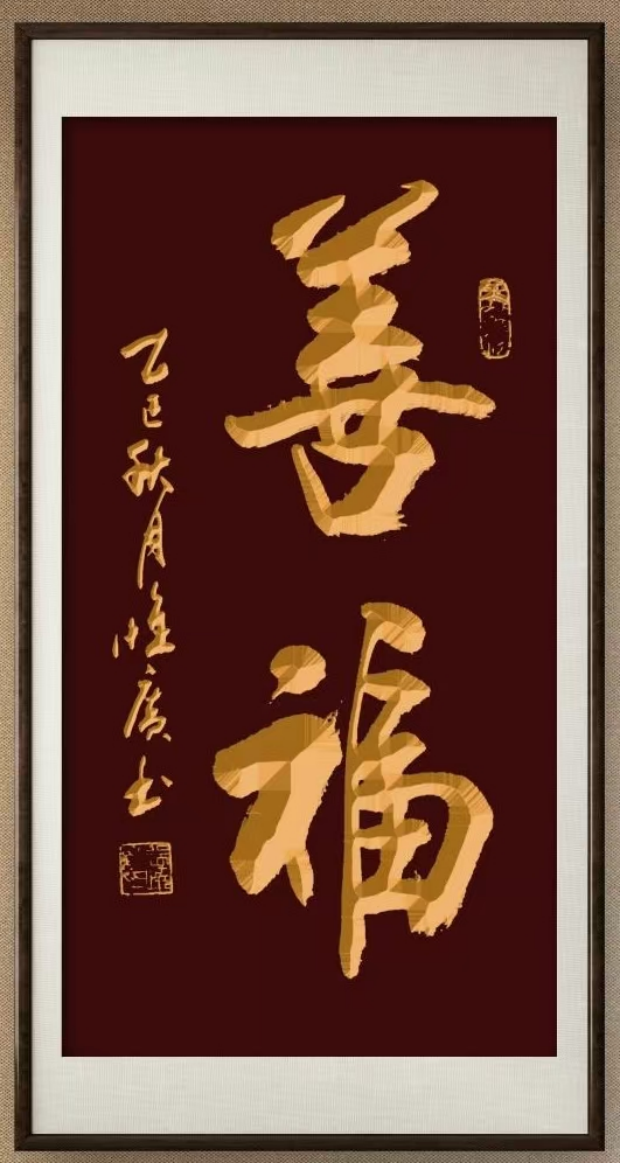 善福
乙巳秋月惟廣书